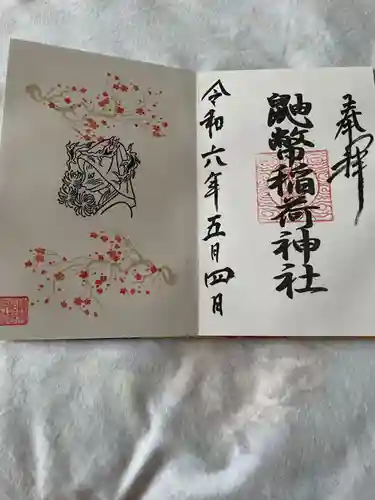 奉拝
鼬幣稲荷神社
令和六年五月四日